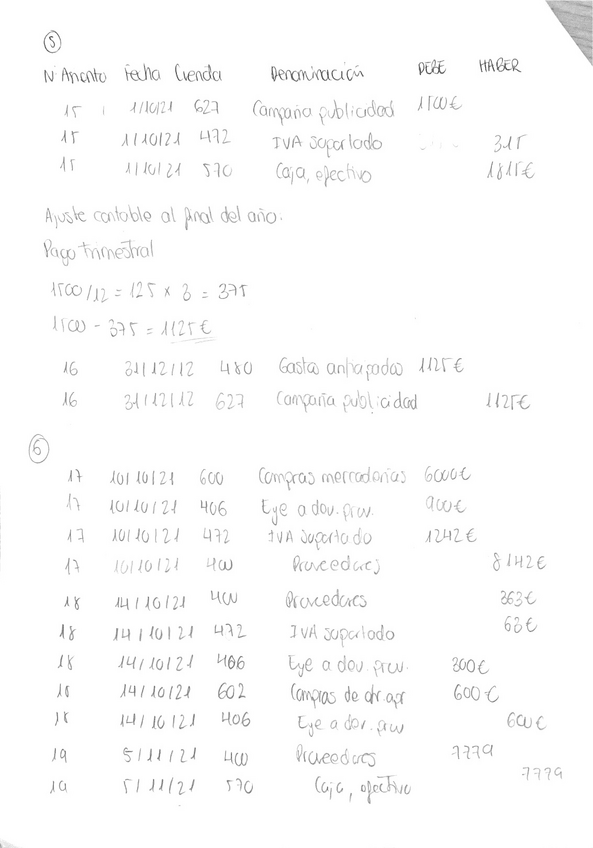 5
Nº Asiento Fecha Cuenta Denominación DEBE HABER
15 1/10/21 627 Campaña publicidad 1500€
15 1/10/21 472 IVA soportado 315
15 1/10/21 570 Caja, efectivo 1815€
Ajuste contable al final del año.
Pago trimestral
1500/12 = 125 x 3 = 375
1500 - 375 = 1125€
16 31/12/12 480 Gastos anticipados 1125€
16 31/12/12 627 Campaña publicidad 1125€
6
17 10/10/21 600 Compras mercaderías 6000€
17 10/10/21 406 Eye a dev. prov. 900€
17 10/10/21 472 IVA soportado 1242€
17 10/10/21 400 Proveedores 8142€
18 14/10/21 400 Proveedores 363€
18 14/10/21 472 IVA soportado 63€
18 14/10/21 406 Eye a dev. prov. 300€
18 14/10/21 602 Compras de otr apr 600€
18 14/10/21 406 Eye a dev. prov 600€
19 5/11/21 400 Proveedores 7779
19 5/11/21 570 Caja, efectivo 7779